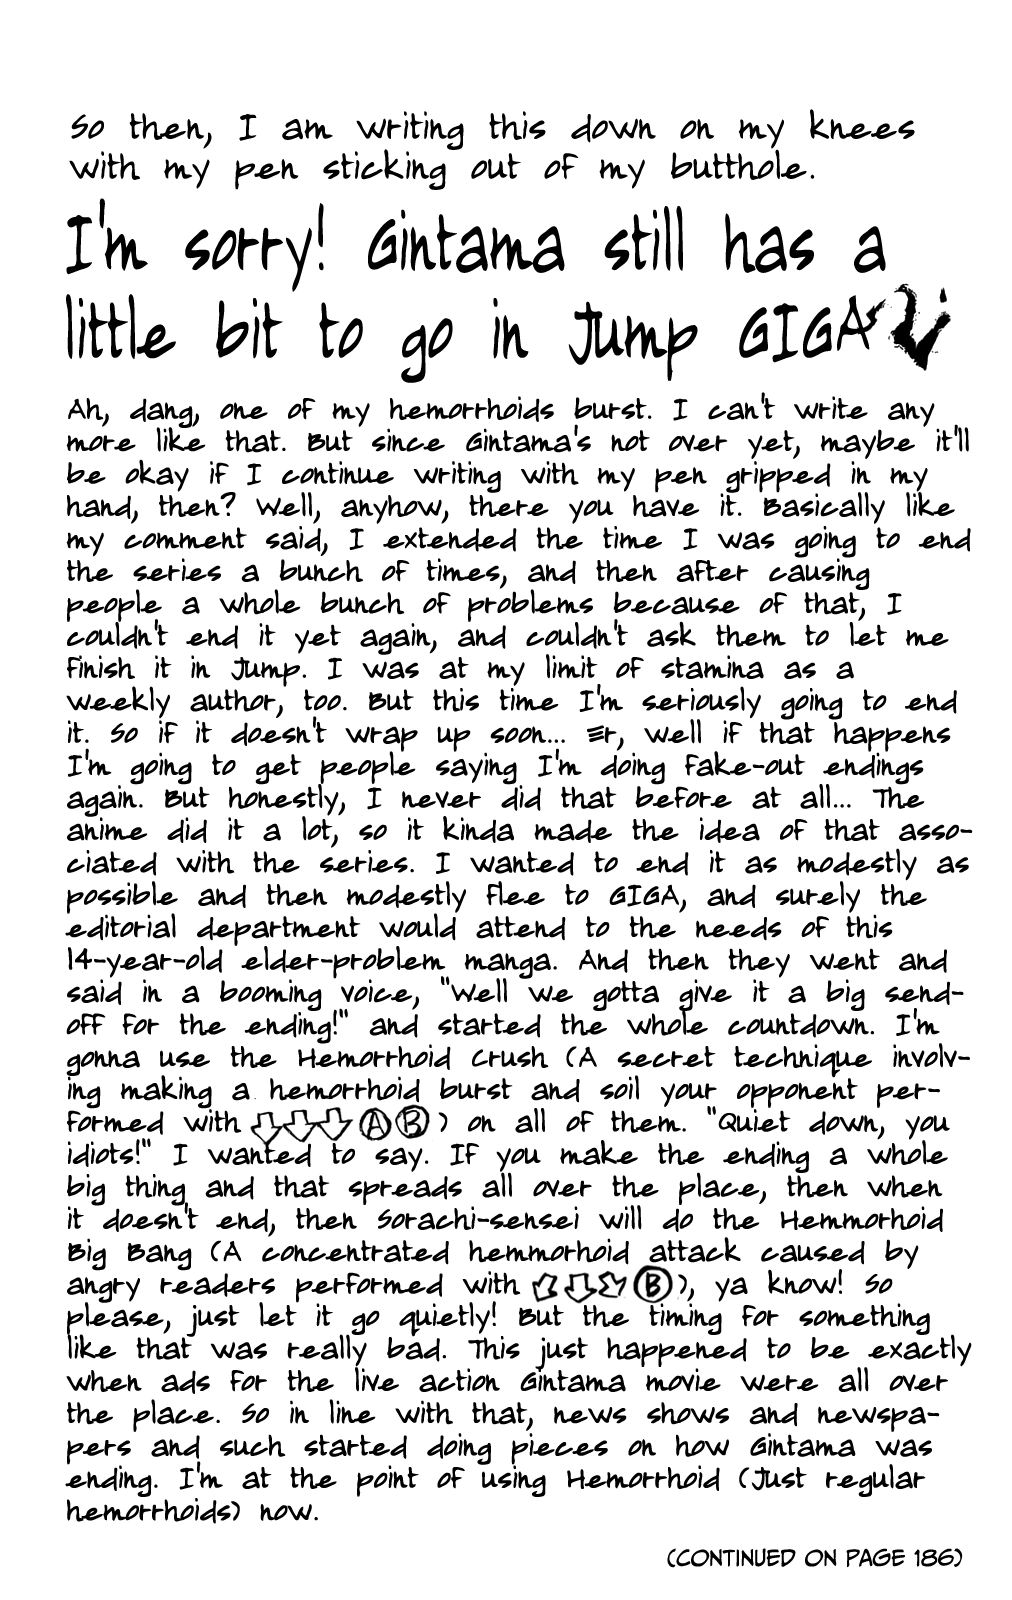 So then, I am writing this down on my knees
with my pen sticking out of my butthole.
I'm sorry! Gintama still has a
little bit to go in Jump GIGA
Ah, dang, one of my hemorrhoids burst. I can't write any
more like that. But since Gintama's not over yet, maybe it'll
be okay if I continue writing with my pen gripped in my
hand, then? Well, anyhow, there you have it. Basically like
my comment said, I extended the time I was going to end
the series a bunch of times, and then after causing
people a whole bunch of problems because of that, I
couldn't end it yet again, and couldn't ask them to let me
finish it in Jump. I was at my limit of stamina as a
weekly author, too. But this time I'm seriously going to end
it. So if it doesn't wrap up soon... Er, well if that happens
I'm going to get people saying I'm doing fake-out endings
again. But honestly, I never did that before at all... The
anime did it a lot, so it kinda made the idea of that asso-
ciated with the series. I wanted to end it as modestly as
possible and then modestly flee to GIGA, and surely the
editorial department would attend to the needs of this
14-year-old elder-problem manga. And then they went and
said in a booming voice, "Well we gotta give it a big send-
off for the ending!" and started the whole countdown. I'm
gonna use the Hemorrhoid Crush (A secret technique involv-
ing making a hemorrhoid burst and soil your opponent per-
formed with ⇩⇩⇩ⒶⒷ) on all of them. "Quiet down, you
idiots!" I wanted to say. If you make the ending a whole
big thing and that spreads all over the place, then when
it doesn't end, then Sorachi-sensei will do the Hemmorhoid
Big Bang (A concentrated hemmorhoid attack caused by
angry readers performed with ⬃⇩⬂Ⓑ), ya know! So
please, just let it go quietly! But the timing for something
like that was really bad. This just happened to be exactly
when ads for the live action Gintama movie were all over
the place. So in line with that, news shows and newspa-
pers and such started doing pieces on how Gintama was
ending. I'm at the point of using Hemorrhoid (Just regular
hemorrhoids) now.
(CONTINUED ON PAGE 186)